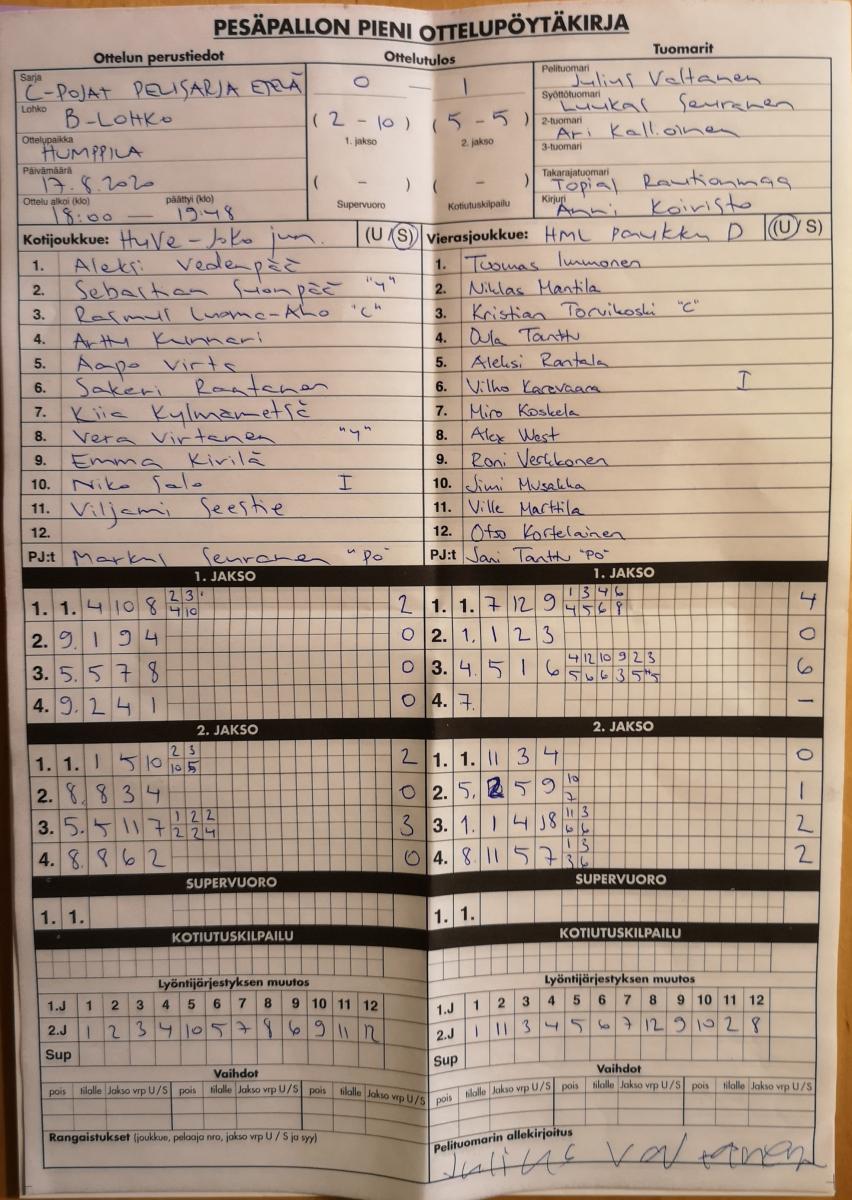 PESÄPALLON PIENI OTTELUPÖYTÄKIRJA
Ottelun perustiedot
Sarja
C-POJAT PELISARJA ETELÄ
Lohko
B-LOHKO
Ottelupaikka
HUMPPILA
Päivämäärä
17.8.2020
Ottelu alkoi (klo) päättyi (klo)
18:00 — 19:48
Ottelutulos
0 — 1
(2 - 10) (5 - 5)
1. jakso 2. jakso
( - ) ( - )
Supervuoro Kotiutuskilpailu
Tuomarit
Pelituomari
Julius Valtanen
Syöttötuomari
Luukas Seuranen
2-tuomari
Ari Kallioinen
3-tuomari
Takarajatuomari
Topias Rautionmaa
Kirjuri
Anni Koivisto
Kotijoukkue: HuVe-JoKo jun. (U / S)
1. Aleksi Vedenpää
2. Sebastian Suonpää "y"
3. Rasmus Luoma-Aho "C"
4. Arttu Kunnari
5. Aapo Virta
6. Sakari Rantanen
7. Kiia Kylmämetsä
8. Vera Virtanen "y"
9. Emma Kivilä
10. Niko Salo I
11. Viljami Seestie
12.
PJ:t Markus Seuranen "PO"
Vierasjoukkue: HML Paukku D (U / S)
1. Tuomas Immonen
2. Niklas Mantila
3. Kristian Torvikoski "C"
4. Oula Tanttu
5. Aleksi Rantala
6. Vilho Karevaara I
7. Miro Koskela
8. Alex West
9. Roni Verkkonen
10. Jimi Musakka
11. Ville Marttila
12. Otso Kortelainen
PJ:t Jani Tanttu "PO"
1. JAKSO
1. 1. 4 10 8 2 3 2
4 10
2. 9. 1 9 4 0
3. 5. 5 7 8 0
4. 9. 2 4 1 0
2. JAKSO
1. 1. 1 5 10 2 3 2
10 5
2. 8. 8 3 4 0
3. 5. 5 11 7 1 2 2 3
2 2 4
4. 8. 8 6 2 0
SUPERVUORO
1. 1.
KOTIUTUSKILPAILU
Lyöntijärjestyksen muutos
1.J 1 2 3 4 5 6 7 8 9 10 11 12
2.J 1 2 3 4 10 5 7 8 6 9 11 12
Sup
Vaihdot
pois tilalle Jakso vrp U/S pois tilalle Jakso vrp U/S pois tilalle Jakso vrp U/S
Rangaistukset (joukkue, pelaaja nro, jakso vrp U / S ja syy)
1. JAKSO
1. 1. 7 12 9 1 3 4 6 4
4 5 6 8
2. 1. 1 2 3 0
3. 4. 5 1 6 4 12 10 9 2 3 6
5 6 6 3 5 5
4. 7. –
2. JAKSO
1. 1. 11 3 4 0
2. 5. 2 5 9 10 1
7
3. 1. 1 4 8 11 3 2
6 6
4. 8. 11 5 7 1 3 2
3 6
SUPERVUORO
1. 1.
KOTIUTUSKILPAILU
Lyöntijärjestyksen muutos
1.J 1 2 3 4 5 6 7 8 9 10 11 12
2.J 1 11 3 4 5 6 7 12 9 10 2 8
Sup
Vaihdot
pois tilalle Jakso vrp U/S pois tilalle Jakso vrp U/S pois tilalle Jakso vrp U/S
Pelituomarin allekirjoitus
Julius Valtanen